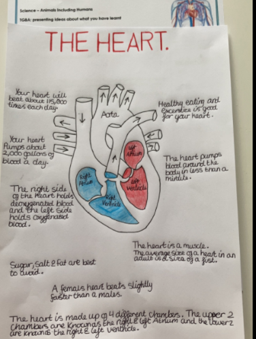 Science - Animals Including Humans
TGBA: presenting ideas about what you have learnt
THE HEART.
Your heart will
beat about 115,000
times each day
Aota
Healthy eating and
excersise is good
for your heart.
Your heart
Pumps about
2,000 gallons of
blood a day.
The heart pumps
blood around the
body in less than a
minute.
The right side
of the heart holds
deoxygenated blood
and the left side
holds oxygenated
blood.
The heart is a muscle.
The average size of a heart in an
adult is the size of a fist.
Sugar, salt & fat are best
to avoid.
A females heart beats slightly
faster than a males.
The heart is made up of 4 different chambers. The upper 2
chambers are known as the right & left Atrium and the lower 2
are known as the right & left ventricle.